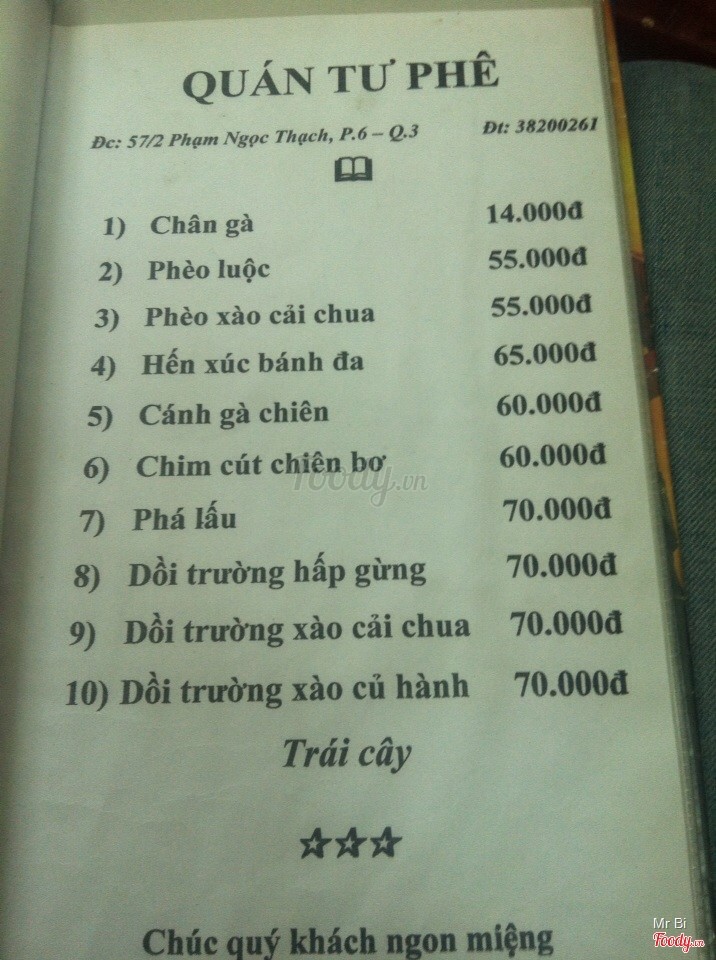 QUÁN TƯ PHÊ
Đc: 57/2 Phạm Ngọc Thạch, P.6 – Q.3 Đt: 38200261
1) Chân gà 14.000đ
2) Phèo luộc 55.000đ
3) Phèo xào cải chua 55.000đ
4) Hến xúc bánh đa 65.000đ
5) Cánh gà chiên 60.000đ
6) Chim cút chiên bơ 60.000đ
7) Phá lấu 70.000đ
8) Dồi trường hấp gừng 70.000đ
9) Dồi trường xào cải chua 70.000đ
10) Dồi trường xào củ hành 70.000đ
Trái cây
Chúc quý khách ngon miệng
foody.vn
Mr Bi
Foody.vn